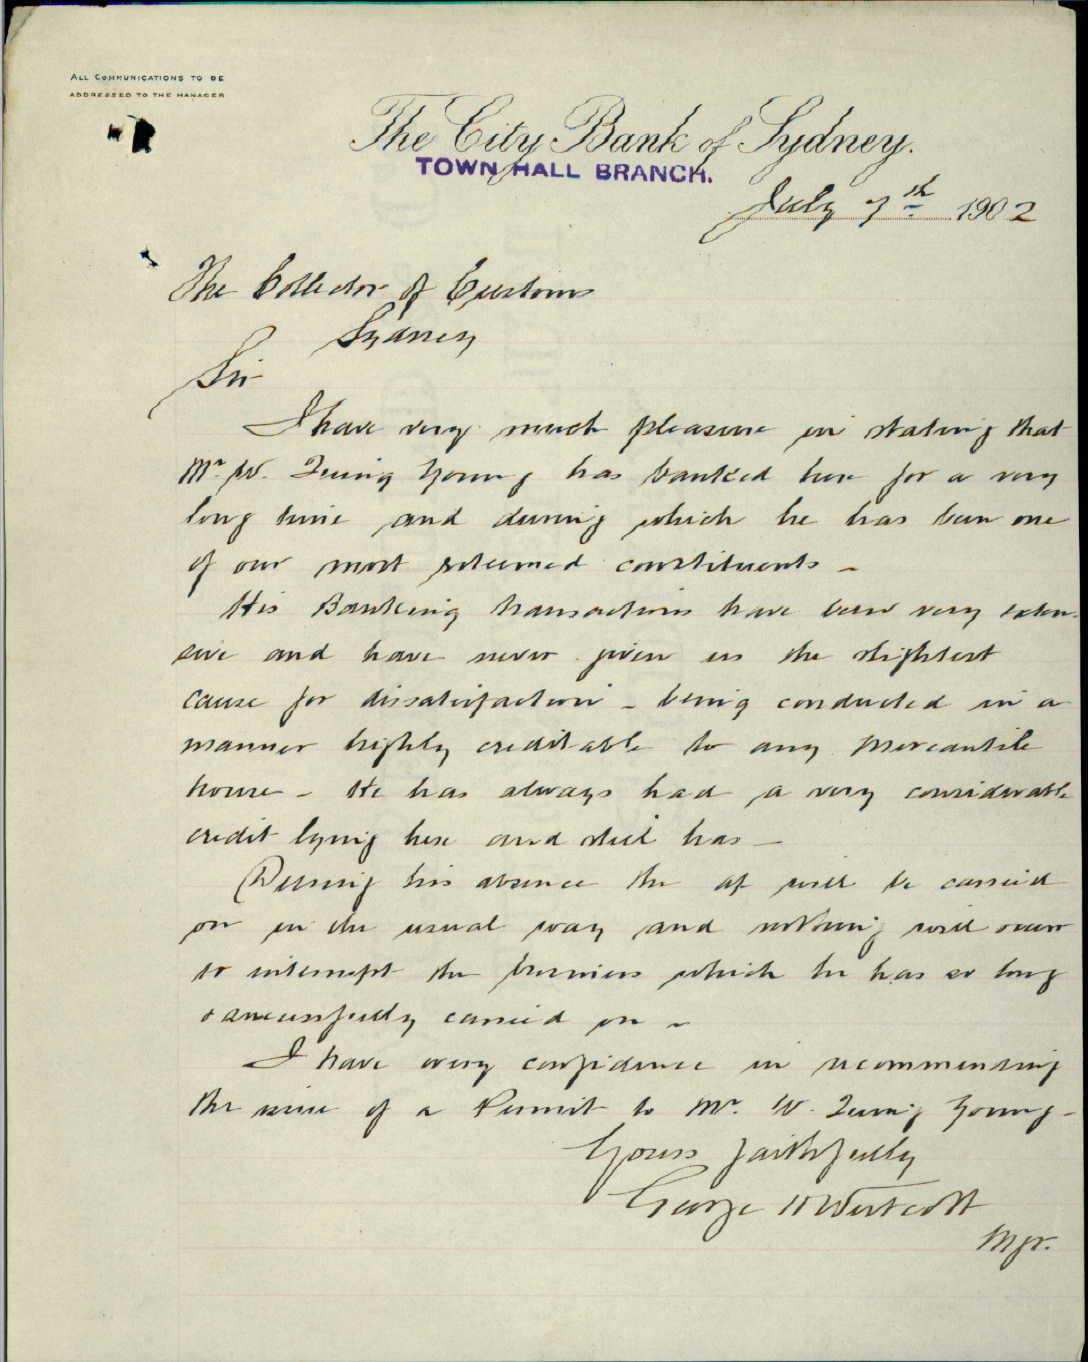 ALL COMMUNICATIONS TO BE
ADDRESSED TO THE MANAGER
The City Bank of Sydney.
TOWN HALL BRANCH.
July 7th 1902
The Collector of Customs
Sydney
Sir
I have very much pleasure in stating that
Mr. W. Quing Young has banked here for a very
long time and during which he has been one
of our most esteemed constituents -
His Banking transactions have been very exten-
sive and have never given us the slightest
cause for dissatisfaction - being conducted in a
manner highly creditable to any Mercantile
house - He has always had a very considerable
credit lying here and still has -
During his absence the a/c will be carried
on in the usual way and nothing will occur
to interrupt the business which he has so long
& successfully carried on -
I have every confidence in recommending
the issue of a Permit to Mr. W. Quing Young -
Yours faithfully
George H Westcott
Mgr.